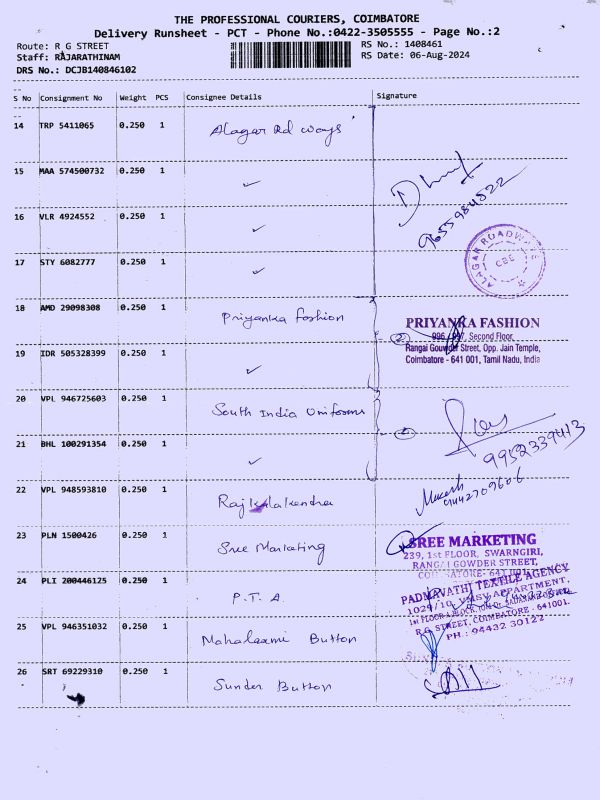 THE PROFESSIONAL COURIERS, COIMBATORE
Delivery Runsheet - PCT - Phone No.:0422-3505555 - Page No.:2
Route: R G STREET
RS No.: 1408461
Staff: RAJARATHINAM
RS Date: 06-Aug-2024
DRS No.: DCJB140846102
S No Consignment No Weight PCS Consignee Details Signature
14 TRP 5411065 0.250 1 Alagar Rd ways
15 MAA 574500732 0.250 1 ✓
9655984522
16 VLR 4924552 0.250 1 ✓
ALAGAR ROADWAYS
CBE
17 STY 6082777 0.250 1 ✓
18 AMD 29098308 0.250 1 Priyanka fashion
PRIYANKA FASHION
2 996 / 997, Second Floor,
Rangai Gowder Street, Opp. Jain Temple,
Coimbatore - 641 001, Tamil Nadu, India
19 IDR 505328399 0.250 1 ✓
20 VPL 946725603 0.250 1 South India Uniforms
2
9952339413
21 BHL 100291354 0.250 1 ✓
22 VPL 948593810 0.250 1 Rajkalakendra
Mukesh
9442709606
23 PLN 1500426 0.250 1 Sree Marketing
SREE MARKETING
239, 1st FLOOR, SWARNGIRI,
RANGAI GOWDER STREET,
COIMBATORE- 641 001
24 PLI 200446125 0.250 1 P.T.A
PADMAVATHI TEXTILE AGENCY
1029/10, APPARTMENT,
R.G STREET, COIMBATORE - 641001.
PH : 94432 30122
25 VPL 946351032 0.250 1 Mahalaxmi Button
26 SRT 69229310 0.250 1 Sunder Button